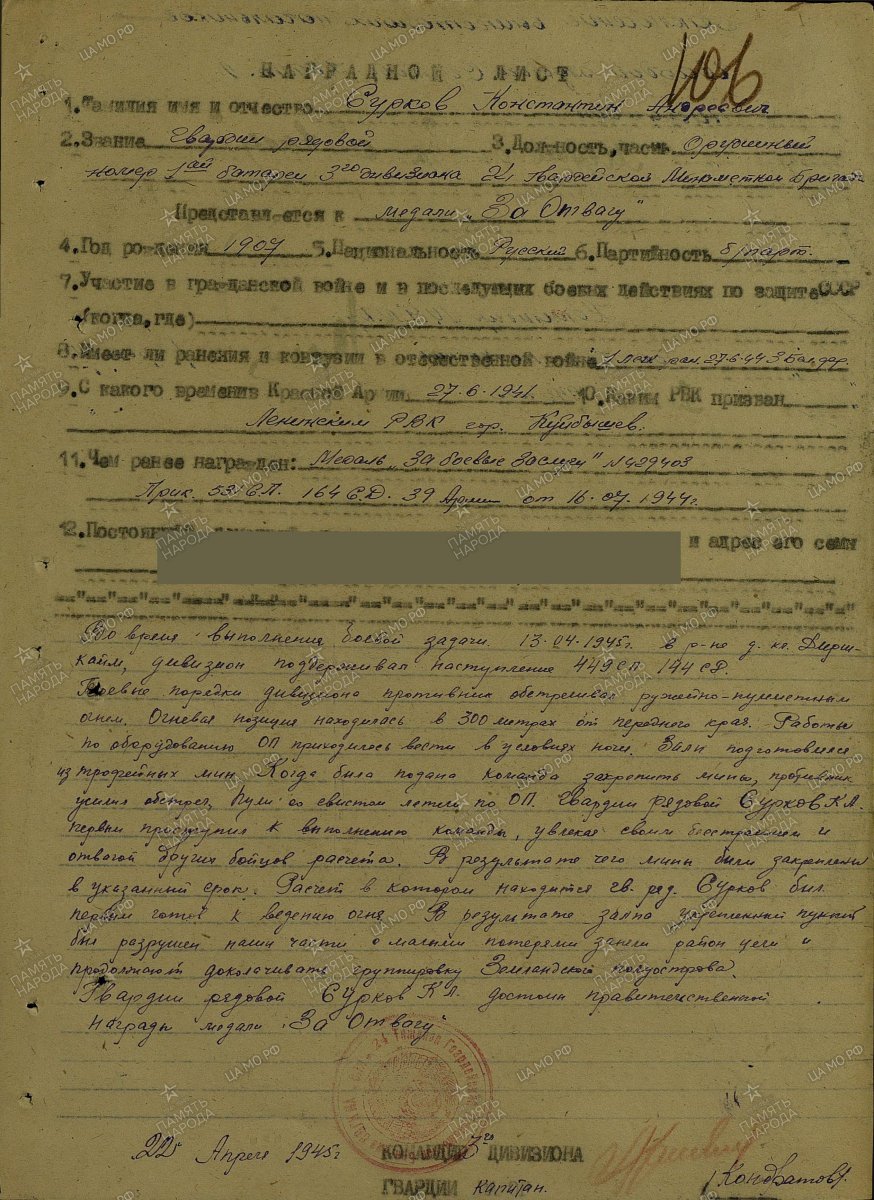 106
НАГРАДНОЙ ЛИСТ
1.Фамилия имя и отчество Сурков Константин Андреевич
2.Звание Гвардии рядовой 3.Должность,часть Орудийный
номер 1ой батареи 3го дивизиона 24 Гвардейской Минометной Бригады
Представляется к медали "За Отвагу"
4.Год рождения 1907 5.Национальность Русский 6.Партийность б/парт.
7.Участие в гражданской войне и в последующих боевых действиях по защите СССР
(когда,где)
8.Имеет ли ранения и контузии в отечественной войне 1 лег. ран. 27.6.44 3 Бел. фр.
9.С какого времени в Красной Армии 27.6.1941. 10.Каким РВК призван
Ленинским РВК гор. Куйбышев.
11.Чем ранее награжден: Медаль "За боевые Заслуги" №429403
Прик. 531 С.П. 164 С.Д. 39 Армии от 16.07.1944г.
12.Постоянный и адрес его семьи
Во время выполнения боевой задачи 13.04.1945г. в р-не д. кс.
дивизион поддерживал наступление 449 СП 144 СД.
Боевые порядки дивизиона противник обстреливал ружейно-пулеметным
огнем. Огневая позиция находилась в 300 метрах от переднего края. Работы
по оборудованию ОП приходилось вести в условиях ночи. Залп подготовлялся
из трофейных мин. Когда была подана команда закрепить мины, противник
усилил обстрел. Пули со свистом летели по ОП. Гвардии рядовой Сурков К.А.
первым приступил к выполнению команды, увлекая своим бесстрашием и
отвагой других бойцов расчета. В результате чего мины были закреплены
в указанный срок. Расчет в котором находится гв. ряд. Сурков был
первым готов к ведению огня. В результате залпа укрепленный пункт
был разрушен наши части с малыми потерями заняли район цели и
продолжают доколачивать группировку Земландского полуострова.
Гвардии рядовой Сурков К.А. достоин правительственной
награды медали "За Отвагу"
22 Апреля 1945г КОМАНДИР 3го ДИВИЗИОНА
ГВАРДИИ капитан. /Кондратов/.
ПАМЯТЬ НАРОДА
ЦАМО.РФ